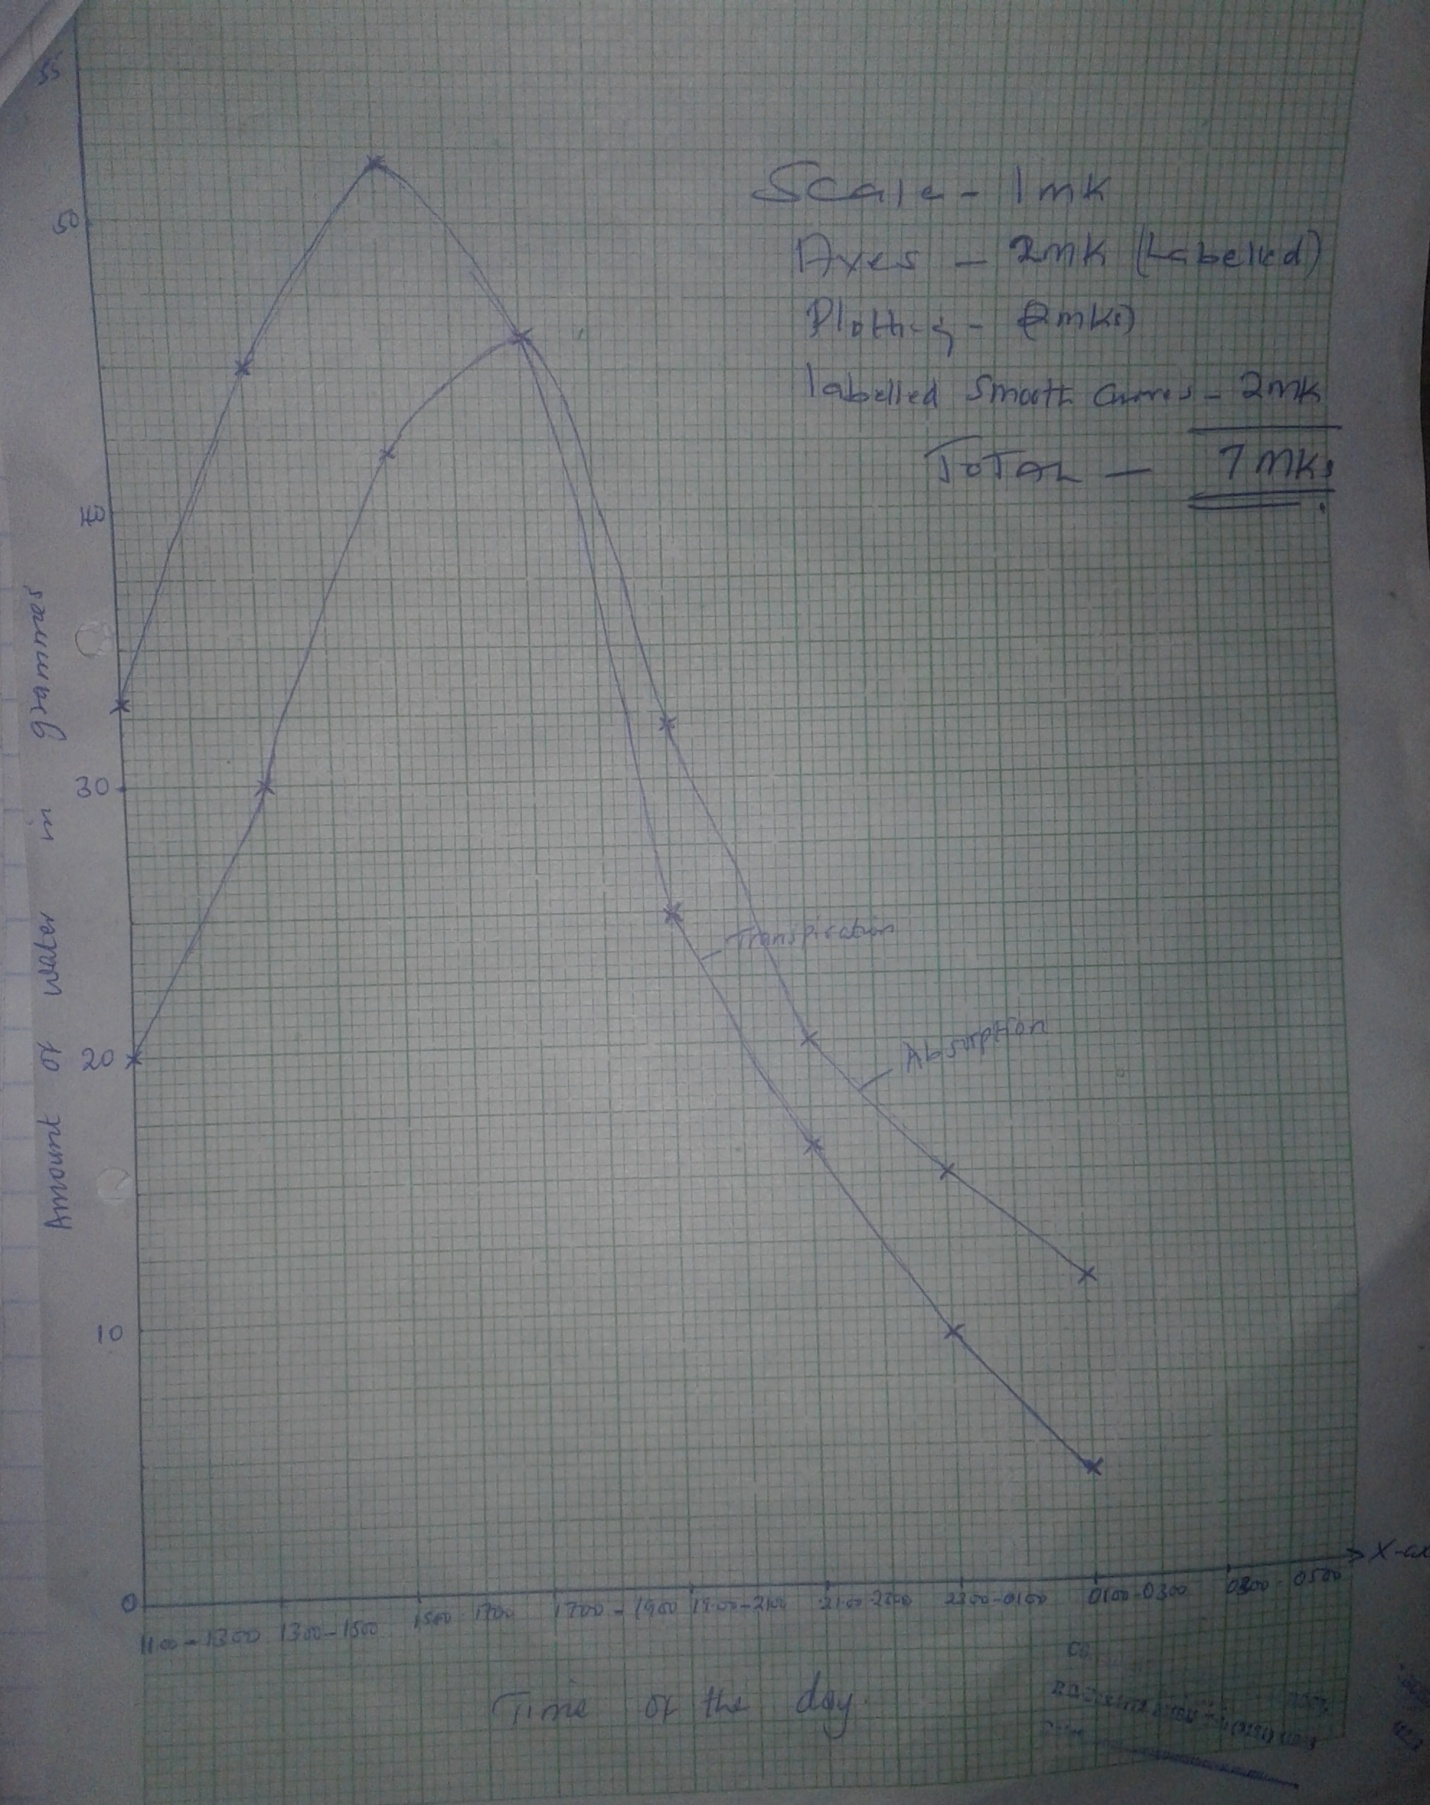 55
50
Scale - 1mk
Axes - 2mk (Labelled)
Plotting - (2mks)
labelled smooth curves - 2mk
TOTAL - 7mks
40
30
20
10
0
Amount of water in grammes
Transpiration
Absorption
X-ax
1100-1300 1300-1500 1500 1700 1700-1900 1900-2100 2100-2300 2300-0100 0100-0300 0300-0500
Time of the day.